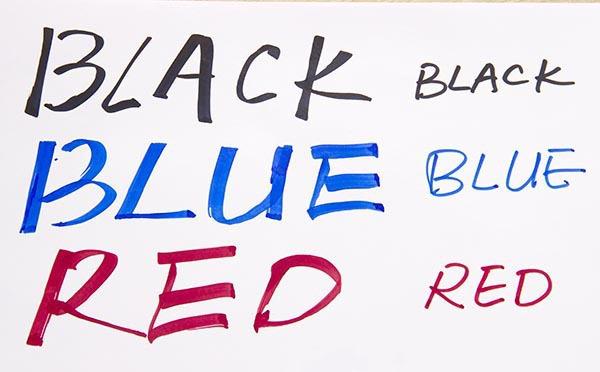 BLACK BLACK
BLUE BLUE
RED RED